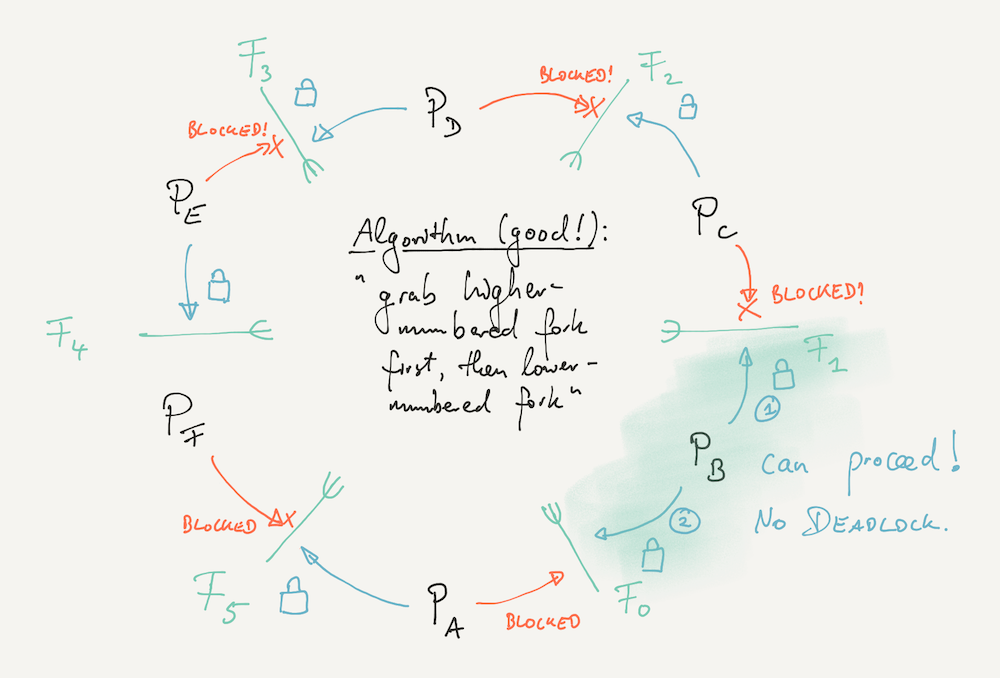 F3
F2
BLOCKED!
PD
BLOCKED!
PE
PC
Algorithm (good!):
"grab higher-
numbered fork
first, then lower-
numbered fork"
BLOCKED!
F4
F1
1
PF
PB can proceed!
No DEADLOCK.
2
BLOCKED
F5
PA
BLOCKED
F0